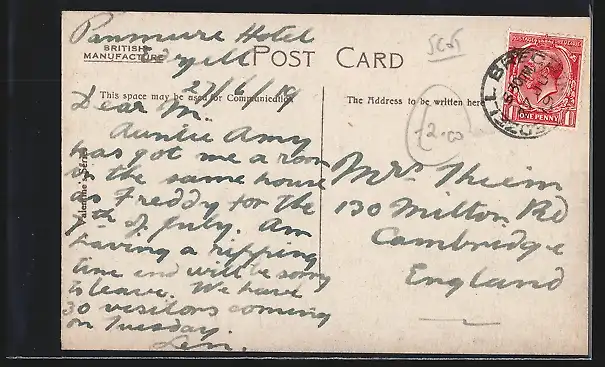 Panmure Hotel
Edzell
27/6/19
BRITISH
MANUFACTURE
POST CARD
This space may be used for Communication
The Address to be written here
Valentine's Series
Dear M.
Auntie Amy
has got me a room
in the same house
as Freddy for the
7th of July. Am
having a ripping
time and will be sorry
to leave. We have
30 visitors coming
on Tuesday.
Len.
Scot
£2.00
Mrs Thiem
130 Milton Rd
Cambridge
England
ONE PENNY
EDZELL